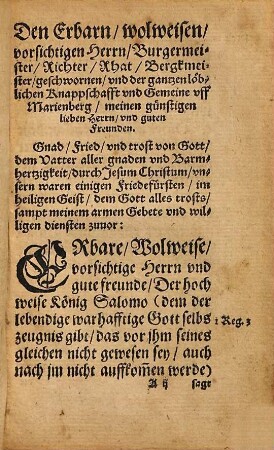 Den Erbarn/ wolweisen/
vorsichtigen Herrn/ Burgermei-
ster/ Richter/ Rhat/ Bergkmei-
ster/ geschwornen/ vnd der gantzen löb-
lichen Knappschafft vnd Gemeine vff
Marienberg/ meinen günstigen
lieben Herrn/ vnd guten
Freunden.
Gnad/ Fried/ vnd trost von Gott/
dem Vatter aller gnaden vnd Barm-
hertzigkeit/ durch Jesum Christum/ vn-
sern waren einigen Friedefürsten/ im
heiligen Geist/ dem Gott alles trosts/
sampt meinem armen Gebete vnd wil-
ligen diensten zuuor:
ERbare/ Wolweise/
vorsichtige Herrn vnd
gute freunde/ Der hoch
weise König Salomo (dem der
lebendige warhafftige Gott selbs 1 Reg. 3
zeugnis gibt/ das vor jhm seines
gleichen nicht gewesen sey/ auch
nach jm nicht auffkom̃en werde)
A ij sagt